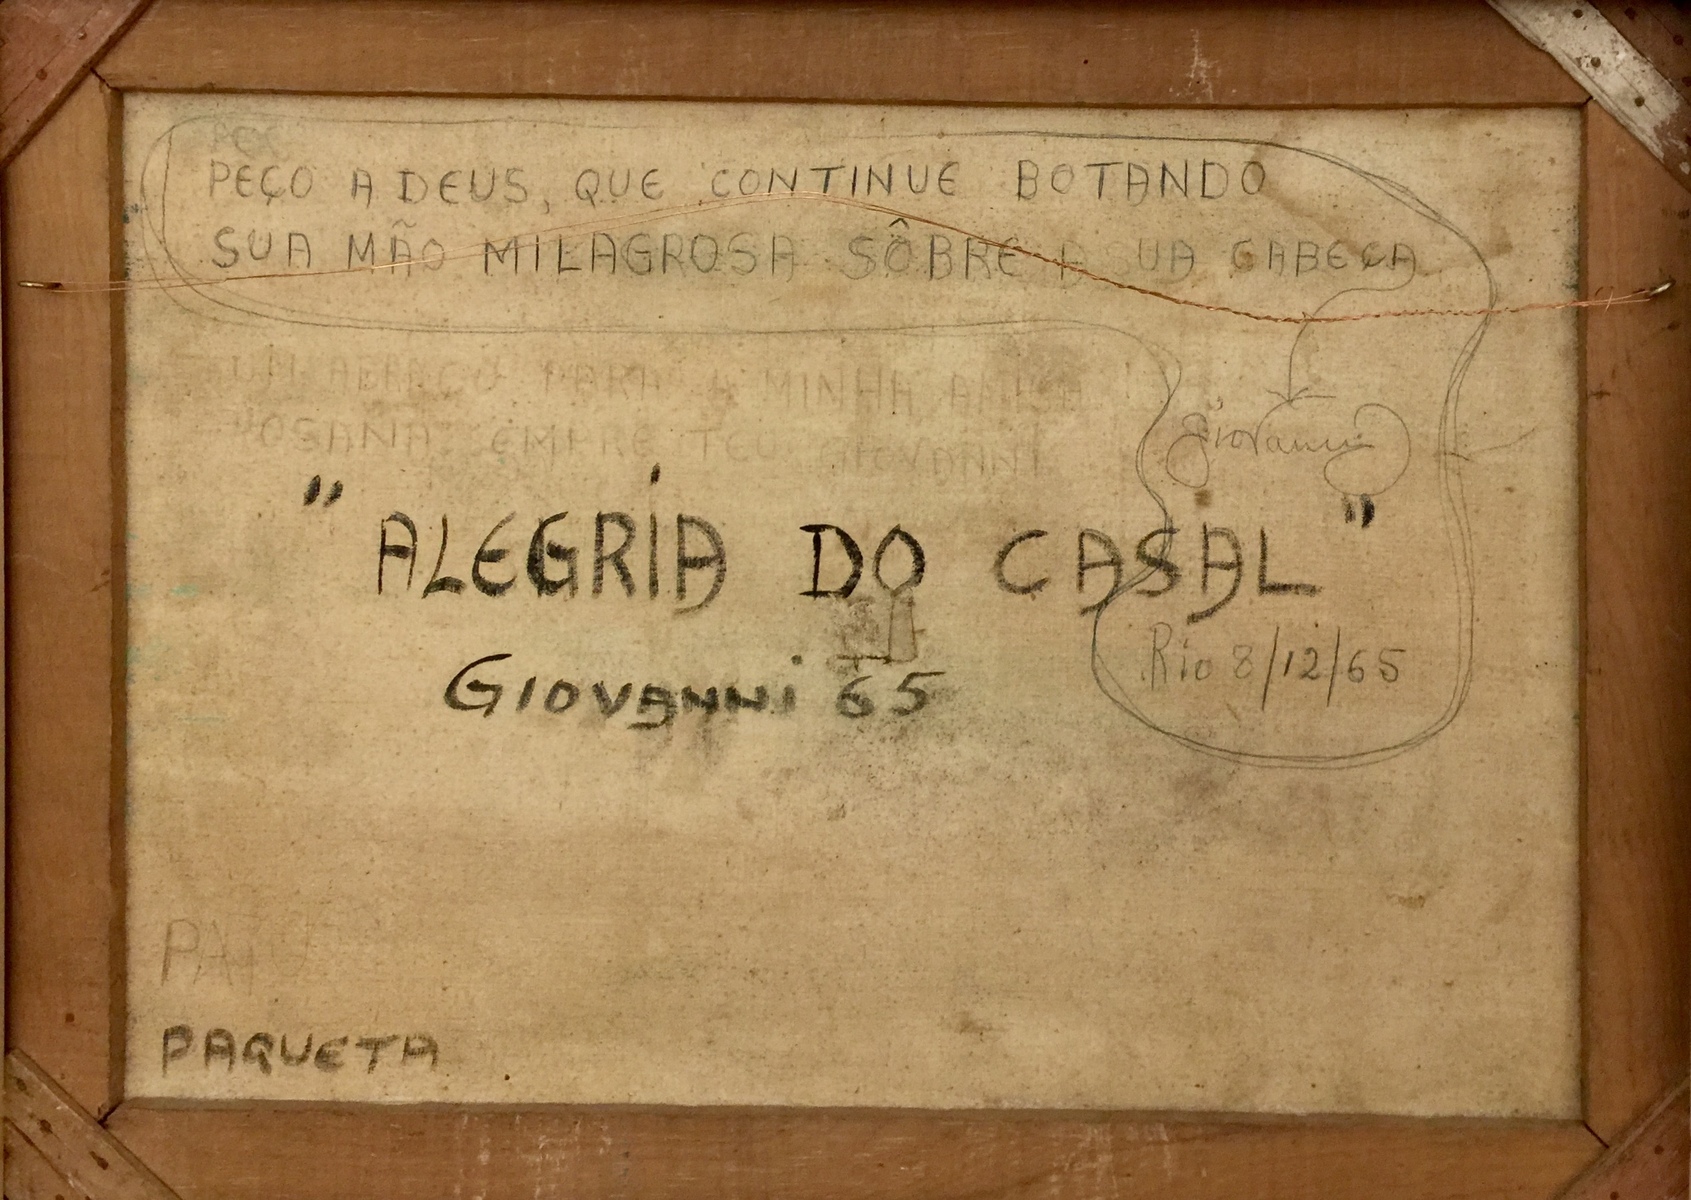 PEÇO A DEUS, QUE CONTINUE BOTANDO
SUA MÃO MILAGROSA SÔBRE A SUA CABEÇA
UM ABRAÇO PARA A MINHA AMIGA
EMPRE TEU GIOVANNI
Giovanni
" ALEGRIA DO CASAL "
Rio 8/12/65
GIOVANNI 65
PAQUETA